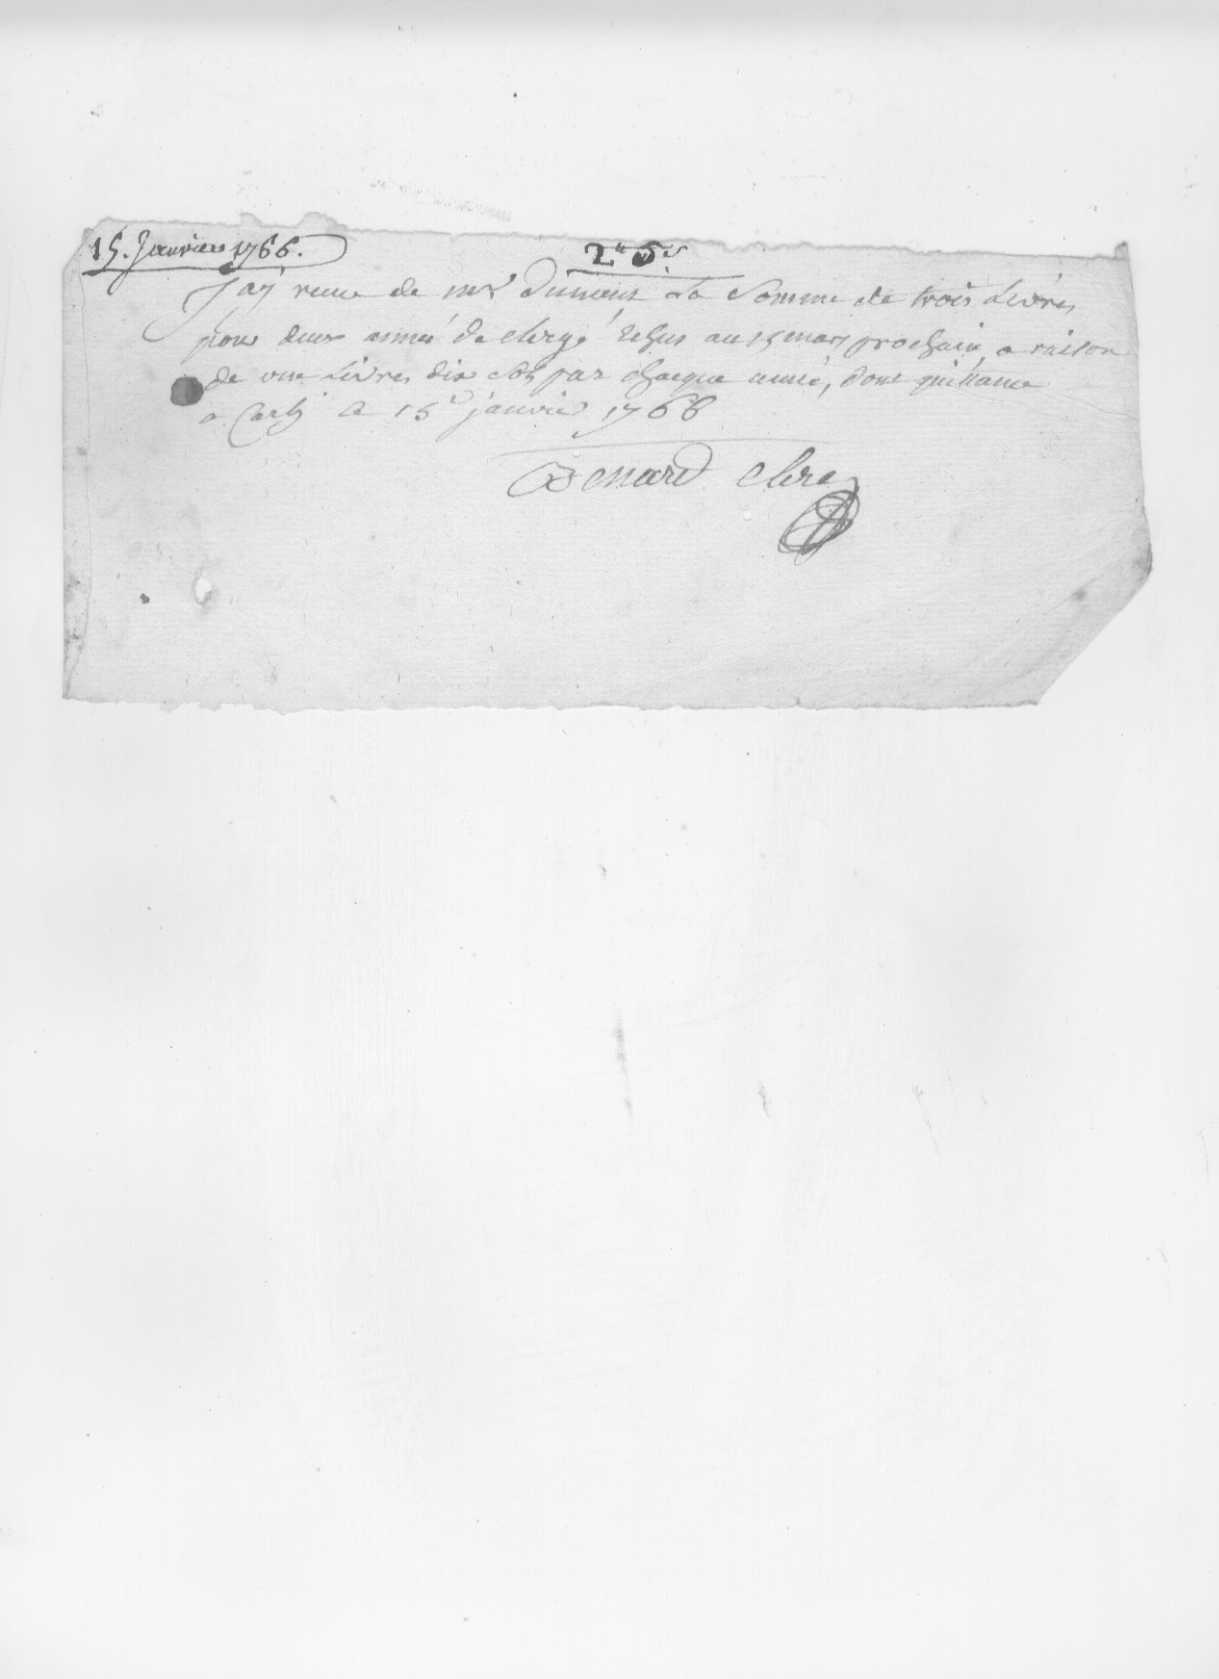 15. Janvier 1766.
2" 5s
J'ay recue de mr Dumont La Somme de trois Livres
pour deux année de clergé Echus au 15 mars prochain, a raison
de une Livres dix sols par chaque année, dont quittance
a ce 15 janvier 1766
Benard clerc